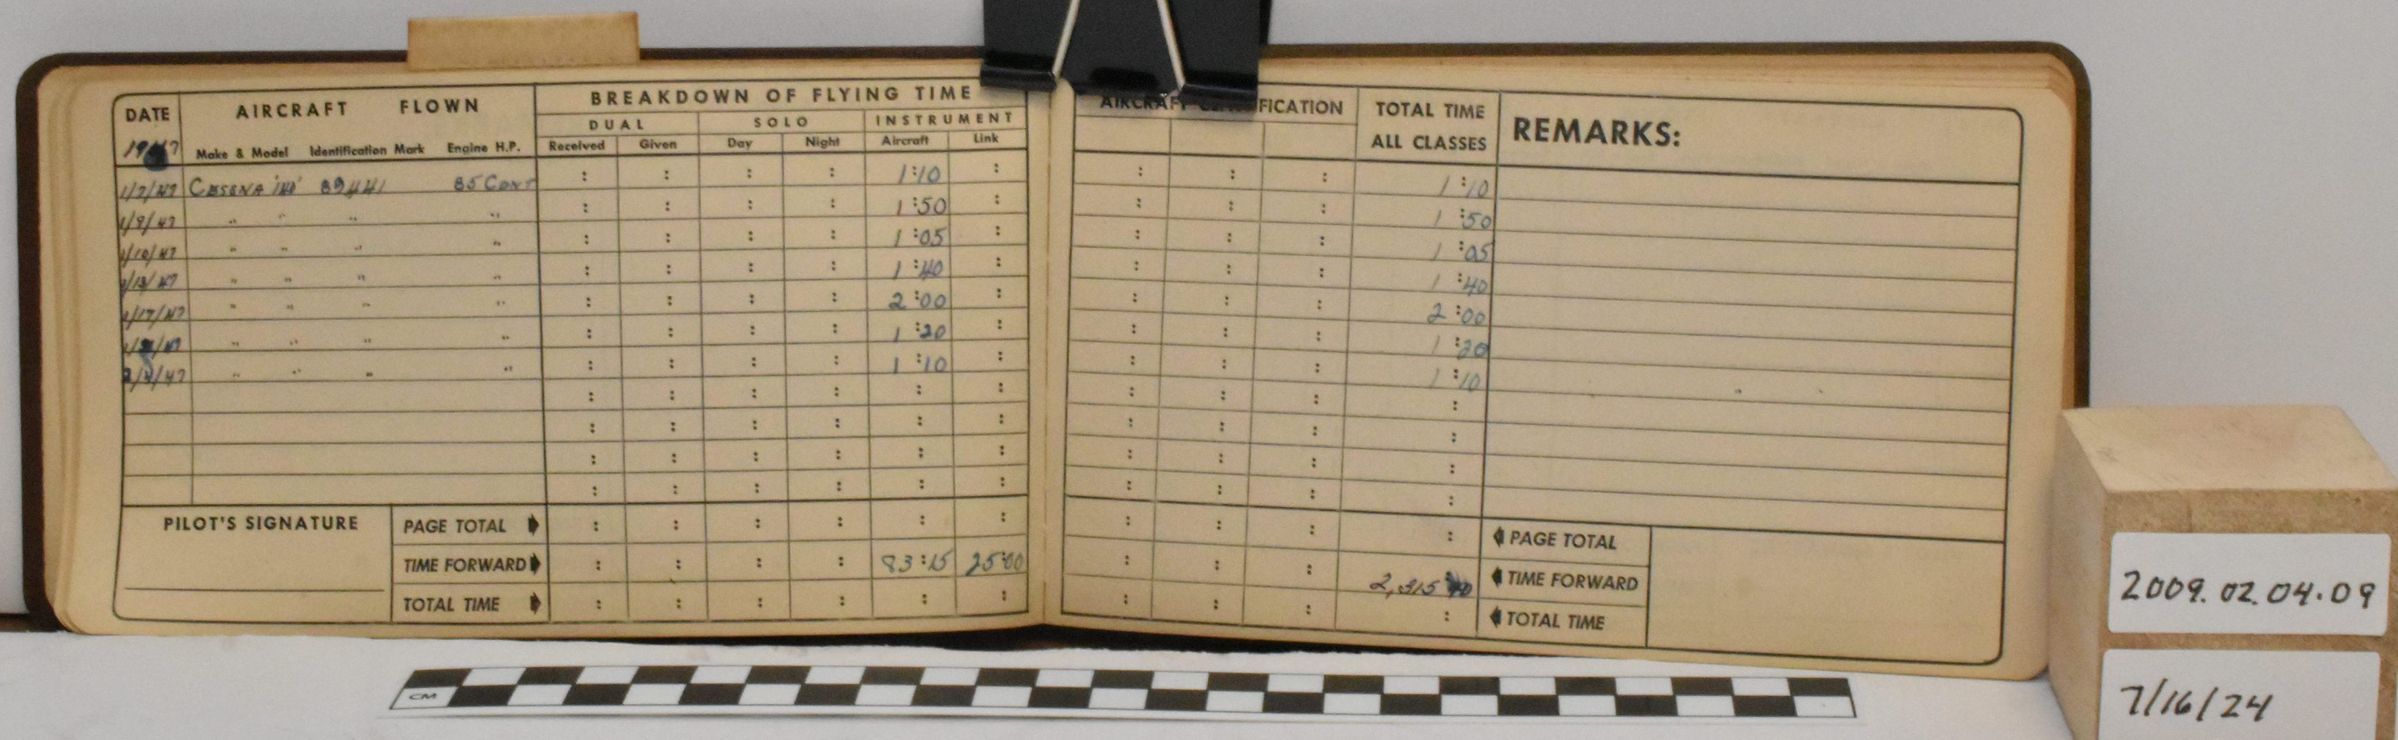 DATE AIRCRAFT FLOWN BREAKDOWN OF FLYING TIME AIRCRAFT FICATION TOTAL TIME ALL CLASSES REMARKS:
DUAL SOLO INSTRUMENT
1947 Make & Model Identification Mark Engine H.P. Received Given Day Night Aircraft Link
1/7/47 CESSNA '140' 89441 85 CONT 1:10 1:10
1/9/47 " " " " 1:50 1:50
1/10/47 " " " " 1:05 1:05
1/13/47 " " " " 1:40 1:40
1/17/47 " " " " 2:00 2:00
" " " " 1:20 1:20
2/4/47 " " " " 1:10 1:10
PILOT'S SIGNATURE PAGE TOTAL PAGE TOTAL
TIME FORWARD 83:15 25:00 2,315 TIME FORWARD
TOTAL TIME TOTAL TIME
CM
2009.02.04.09
7/16/24